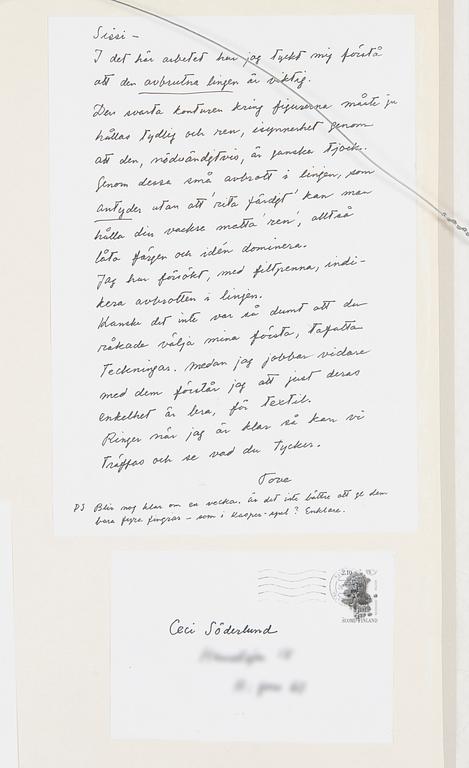 Sissi –
I det här arbetet har jag tyckt mig förstå
att den avbrutna lingen är viktig.
Den svarta konturen kring figurerna måste ju
hållas tydlig och ren, isynnerhet genom
att den, nödvändigtvis, är ganska tjock.
Genom dessa små avbrott i linjen, som
antyder utan att 'rita färdigt' kan man
hålla din vackra matta 'ren', alltså
låta färgen och idén dominera.
Jag har försökt, med filtpenna, indi-
kera avbrotten i linjen.
Kanske det inte var så dumt att du
råkade välja mina första, tafatta
teckningar. Medan jag jobbar vidare
med dem förstår jag att just deras
enkelhet är bra, för textil.
Ringer när jag är klar så kan vi
träffas och se vad du tycker.
Tove
PS Blir nog klar om en vecka. Är det inte bättre att ge dem
bara fyra fingrar – som i kasper-spel? Enklare.
2.10
SUOMI FINLAND
Ceci Söderlund